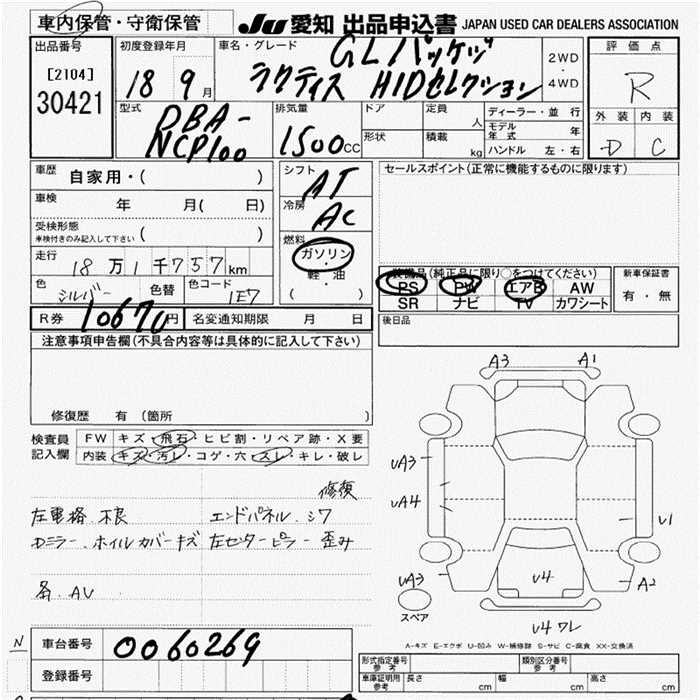 車内保管・守衛保管
JU 愛知 出品申込書 JAPAN USED CAR DEALERS ASSOCIATION
出品番号 初度登録年月 車名・グレード GLパッケージ 2WD ・ 4WD 評価点
[2104] 30421 18 9月 ラクティス HIDセレクション R
型式 DBA-NCP100 排気量 1500cc ドア 定員 人 ディーラー・並行 外装 内装
形状 積載 kg モデル年式 年 D C
ハンドル 左・右
車歴 自家用・( ) シフト AT セールスポイント(正常に機能するものに限ります)
車検 年 月( 日) 冷房 AC
受検形態 ( )
※検付きのみ記入して下さい
燃料 ガソリン・軽・油 ( )
走行 18万1千757km 装備品(純正品に限り○をつけてください) 新車保証書
色 シルバー 色替 色コード 1E7 PS PW エアB AW 有・無
SR ナビ TV カワシート
R券 10670円 名変通知期限 月 日 後日品
注意事項申告欄(不具合内容等は具体的に記入して下さい)
修復歴 有 (箇所 )
検査員 FW キズ・飛石・ヒビ割・リペア跡・X要
記入欄 内装 キズ・汚レ・コゲ・穴・スレ・キレ・破レ
修復
左電格 不良 エンドパネル シワ
Dミラー ホイルカバーキズ 左センターピラー 歪み
AU
A3 A1
UA3
UA4
U1
UA3 U4 A2
スペア
U4 ワレ
A-キズ E-エクボ U-凹み W-補修跡 S-サビ C-腐食 XX-交換済
N 車台番号 0060269
登録番号
形式指定番号 参考 類別区分番号 参考
車庫証明用 参考 長さ cm 幅 cm 高さ cm